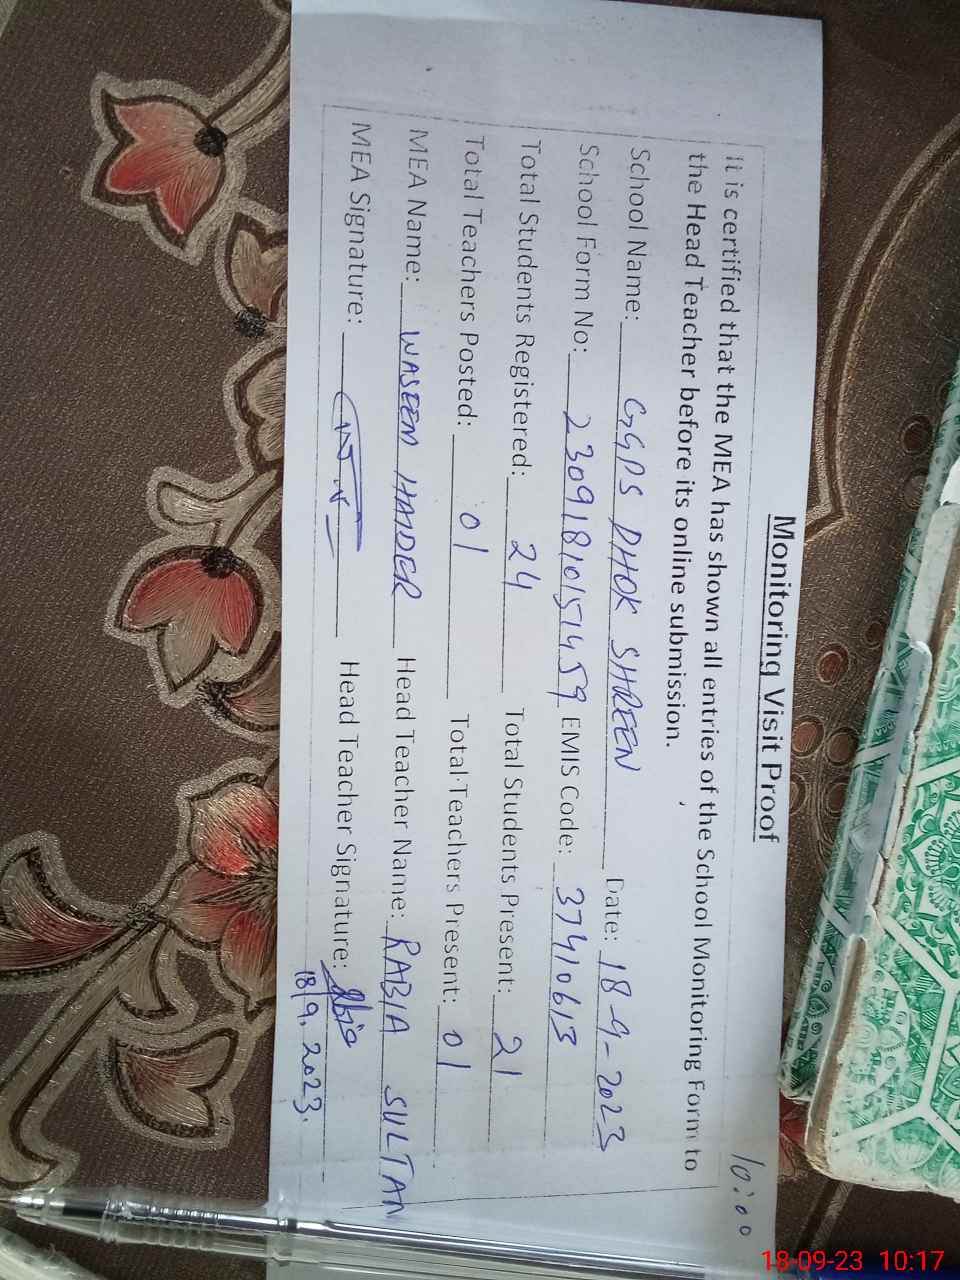 10:00
Monitoring Visit Proof
It is certified that the MEA has shown all entries of the School Monitoring Form to
the Head Teacher before its online submission.
School Name: GGPS DHOK SHREEN Date: 18-9-2023
School Form No: 23091810151459 EMIS Code: 37410613
Total Students Registered: 24 Total Students Present: 21
Total Teachers Posted: 01 Total Teachers Present: 01
MEA Name: WASEEM HAIDER Head Teacher Name: RABIA SULTAN
MEA Signature: Head Teacher Signature:
18/9.2023.
18-09-23 10:17